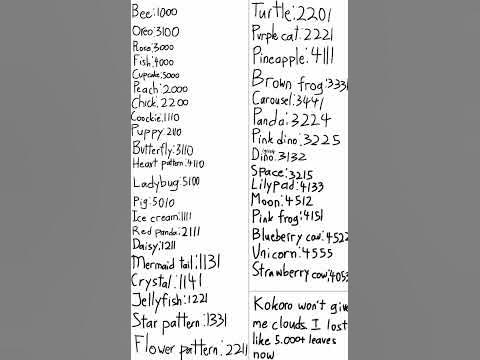 Bee:1000
Oreo:3100
Rose:3000
Fish:4000
Cupcake:5000
Peach:2000
Chick:2200
Coockie:1110
Puppy:2110
Butterfly:3110
Heart pattern:4110
Ladybug:5100
Pig:5010
Ice cream:1111
Red panda:2111
Daisy:1211
Mermaid tail:1131
Crystal:1141
Jellyfish:1221
Star pattern:1331
Flower pattern:2211
Turtle:2201
Purple cat:2221
Pineapple:4111
Brown frog:3331
Carousel:3441
Panda:3224
Pink dino:3225
Dino:3132
Space:3215
Lilypad:4133
Moon:4512
Pink frog:4151
Blueberry cow:4522
Unicorn:4555
Strawberry cow:4053
Kokoro won't give
me clouds. I lost
like 5.000+ leaves
now